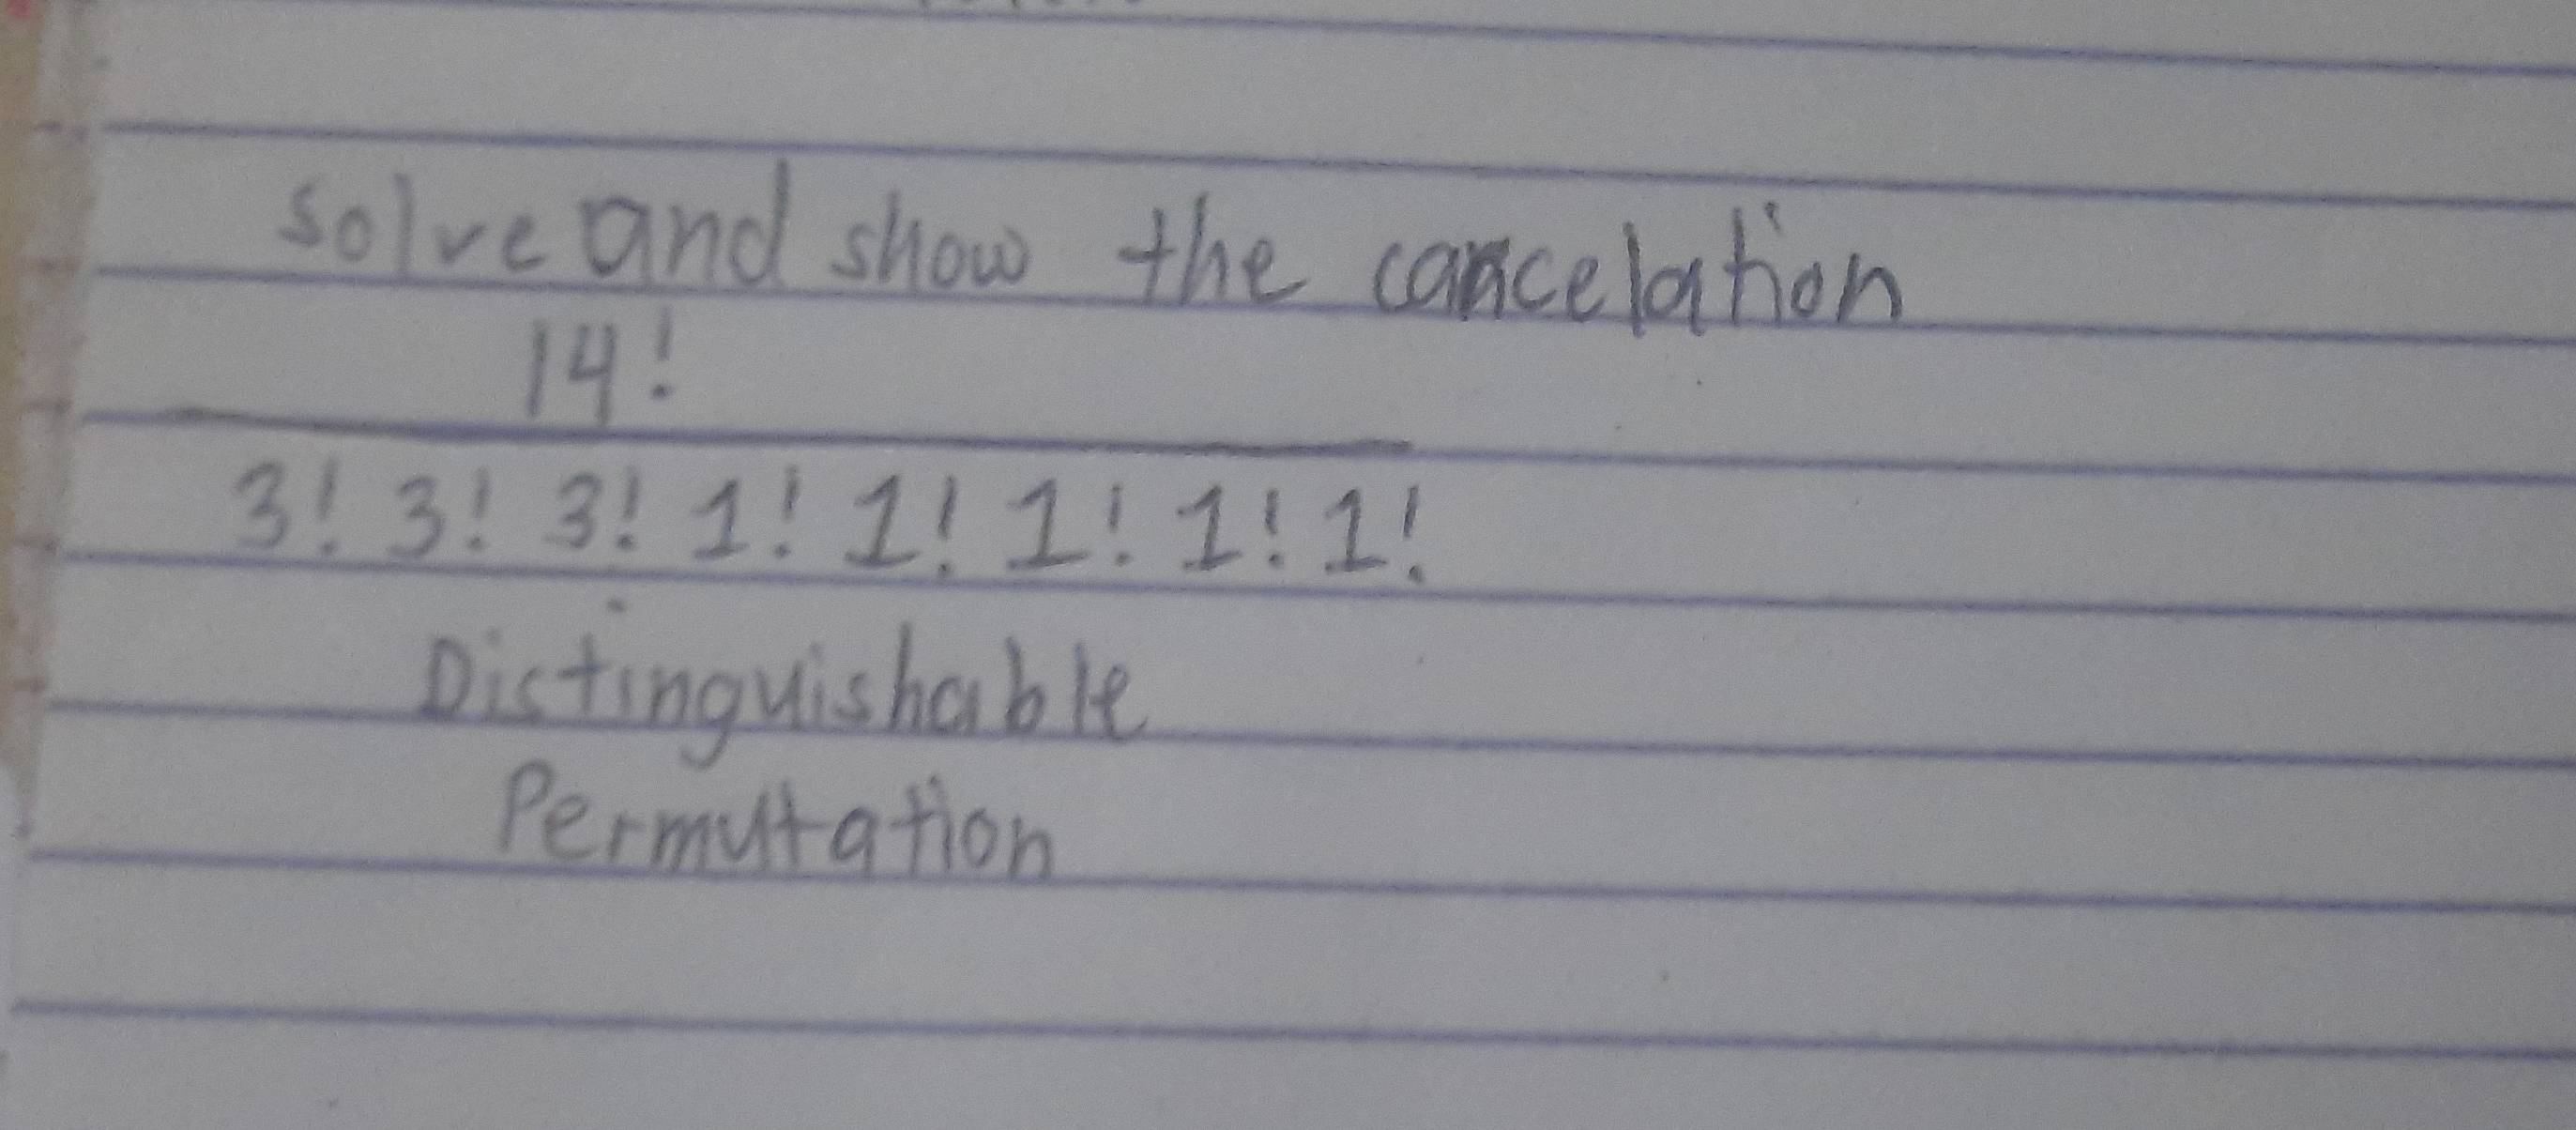 solve and show the cancelation
14!
3! 3! 3! 1! 1! 1! 1! 1!
Distinguishable
Permutation